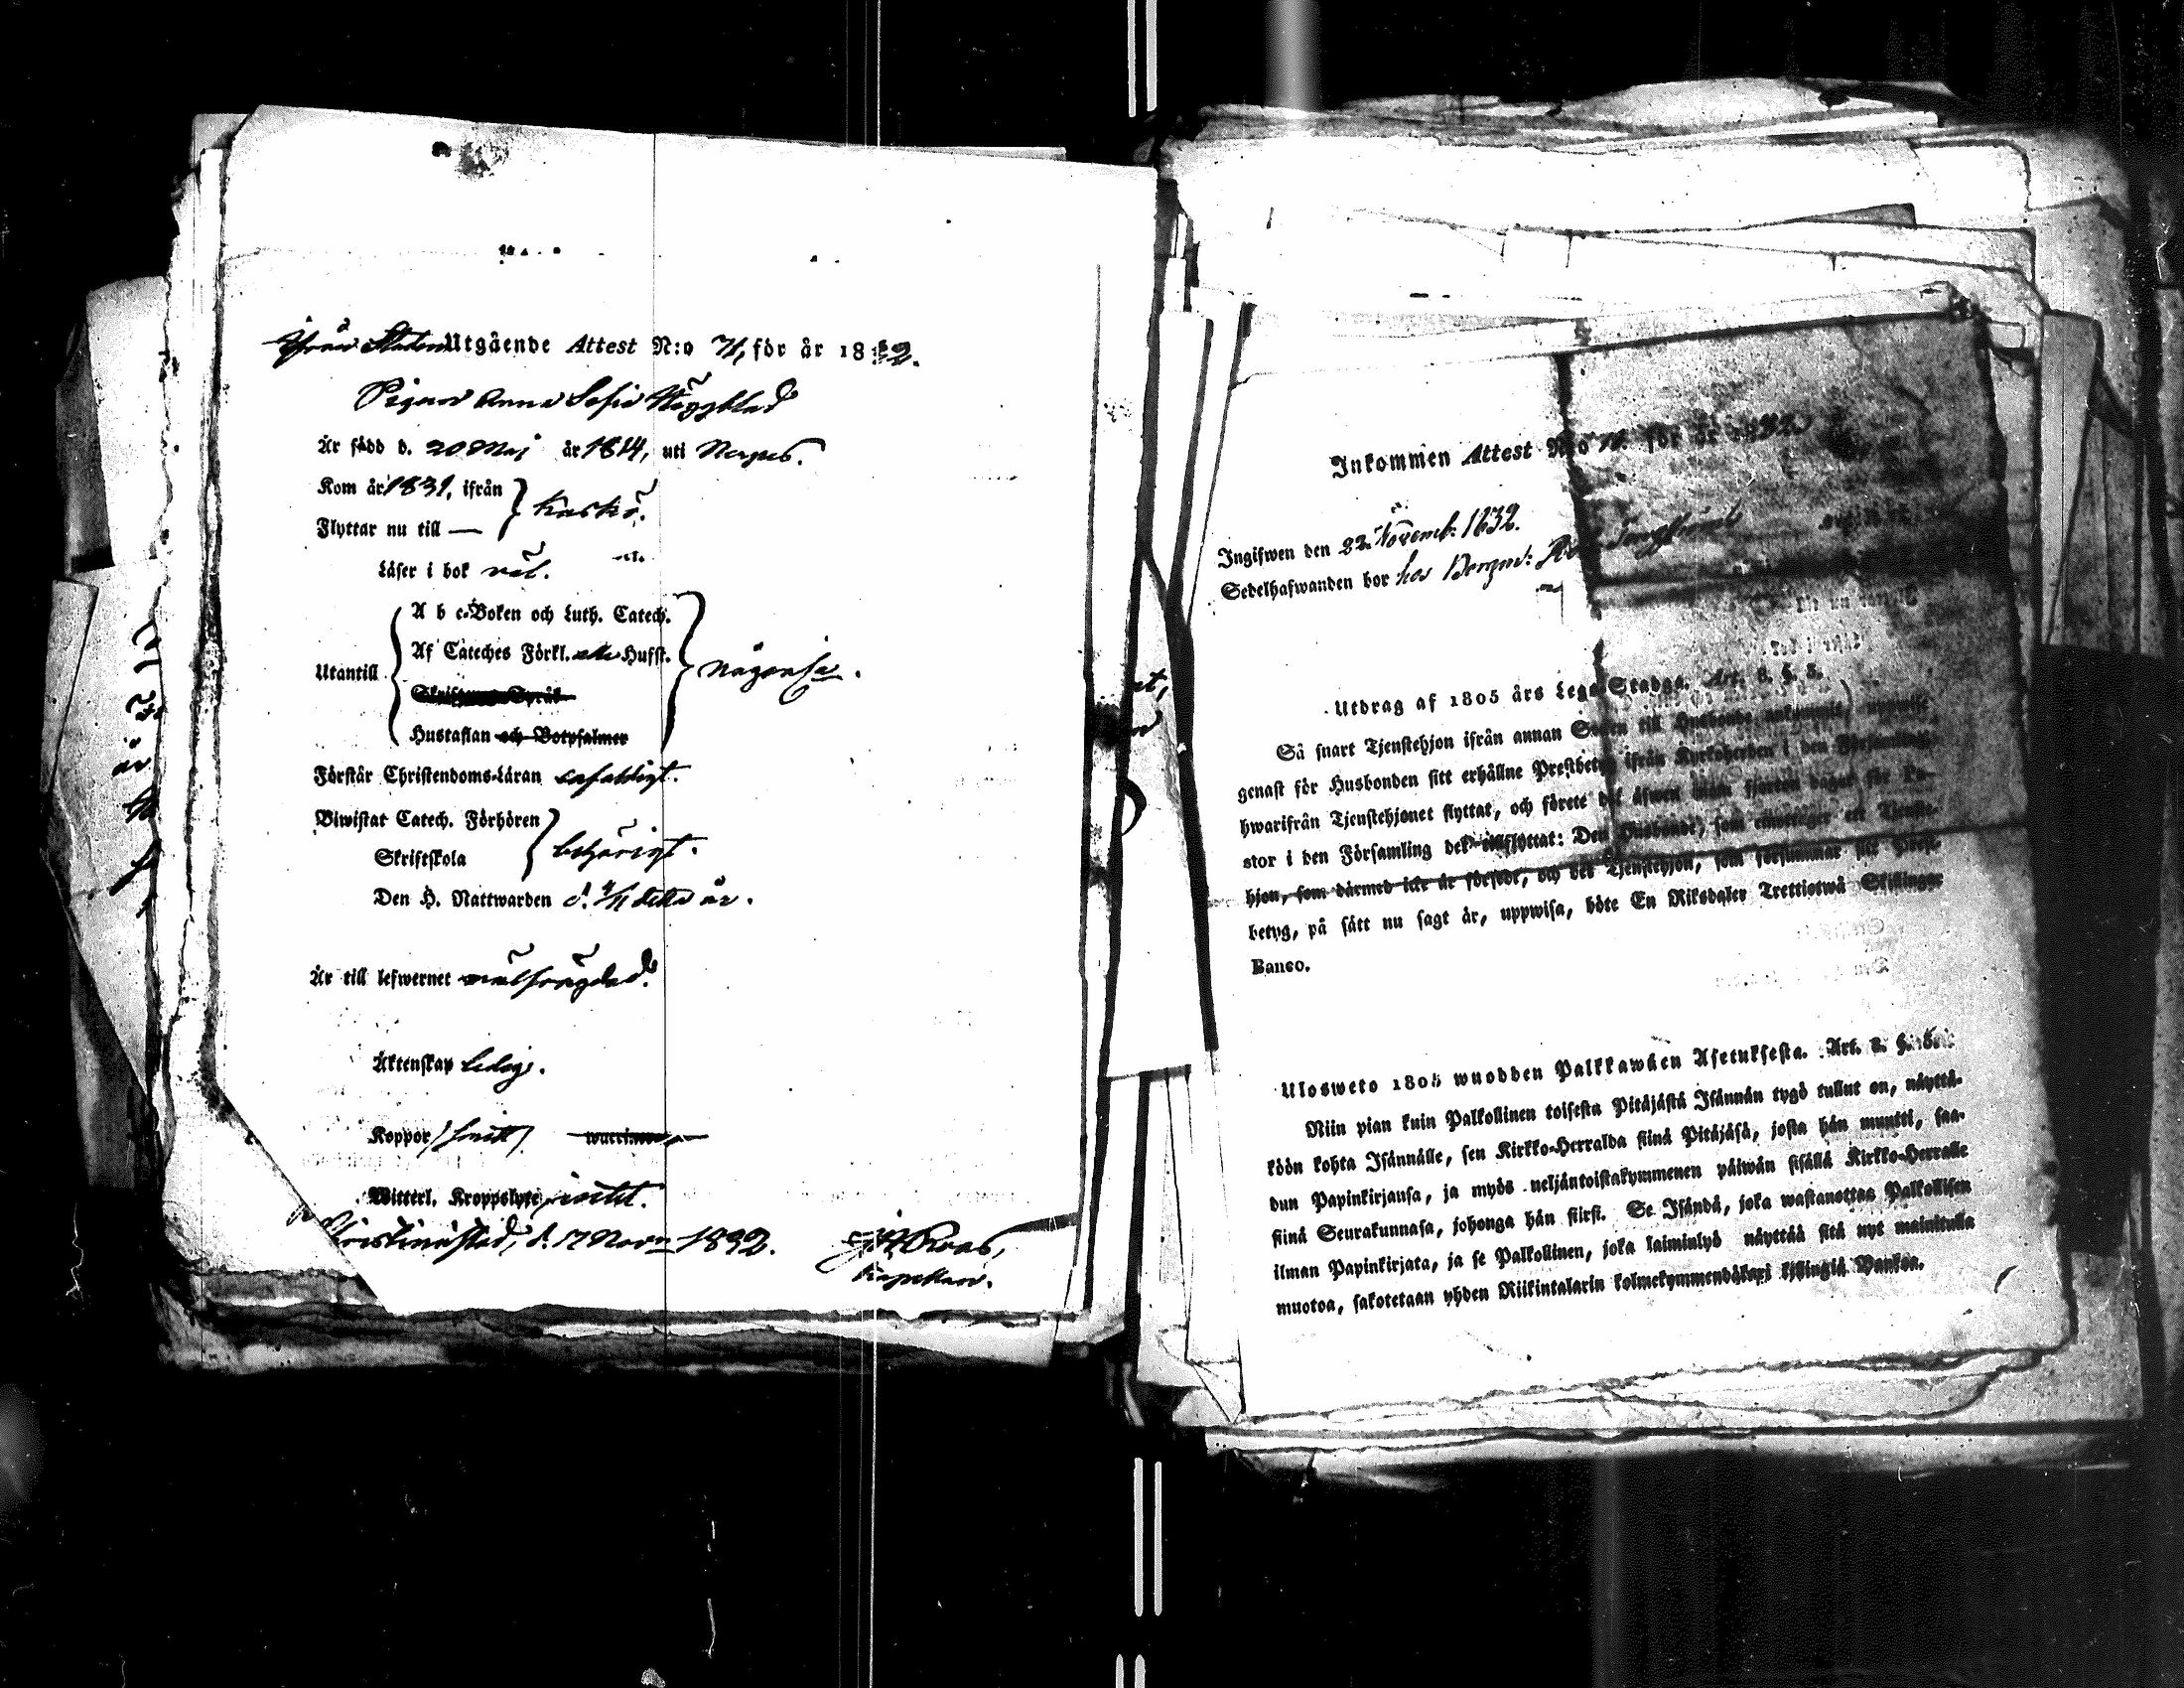 ifrån Staden Utgående Attest N:o 71, för år 1832.
Pigan Anna Sofia Häggblad
Är född d. 20 Maj år 1814, uti Nerpes.
Kom år 1831, ifrån
Flyttar nu till — Kaskö.
Läser i bok väl.
A b c-Boken och Luth. Catech.
Af Cateches Förkl. Husf.
Utantill någorl.
Skriftenes Språk
Hustaflan och Botpsalmer
Förstår Christendoms-Läran enfaldigt.
Biwistat Catech. Förhören
Skriftskola behörigt.
Den H. Nattwarden d. detta år.
Är till lefwernet välfrägdad.
Äktenskap ledig.
Koppor haft waccinerad
Witterl. Kroppslyte intet.
Christinestad, d. 17 Nov. 1832.
Kapellan.
Inkommen Attest N:o 71. för år 1832
Ingifwen den 22. Novemb. 1832.
Sedelhafwanden bor hos Borgm:
Utdrag af 1805 års Lego-Stadga. Art. 8. §. 5.
Så snart Tjenstehjon ifrån annan Socken till Husbonde ankommit, uppwise
genast för Husbonden sitt erhållne Prestbetyg ifrån Kyrkoherden i den Församling,
hwarifrån Tjenstehjonet flyttat, och förete det äfwen inom fjorton dagar för Pa-
stor i den Församling det tillflyttat: Den Husbonde, som emottager ett Tjenste-
hjon, som därmed icke är försedt, och det Tjenstehjon, som försummar sitt Prest-
betyg, på sätt nu sagt är, uppwisa, böte En Riksdaler Trettiotwå Skillingar
Banco.
Ulosweto 1805 wuodden Palkkawäen Asetuksesta. Art. 8. §. 5.
Niin pian kuin Palkollinen toisesta Pitäjästä Isännän tygö tullut on, näyttä-
köön kohta Isännälle, sen Kirkko-Herralda siinä Pitäjäsä, josta hän muutti, saa-
dun Papinkirjansa, ja myös neljäntoistakymmenen päiwän sisällä Kirkko-Herralle
siinä Seurakunnasa, johonga hän siirsi. Se Isändä, joka wastanottaa Palkollisen
ilman Papinkirjata, ja se Palkollinen, joka laiminlyö näyttää sitä nyt mainitulla
muotoa, sakotetaan yhden Riikintalarin kolmekymmendäkaxi killingiä Bankoa.